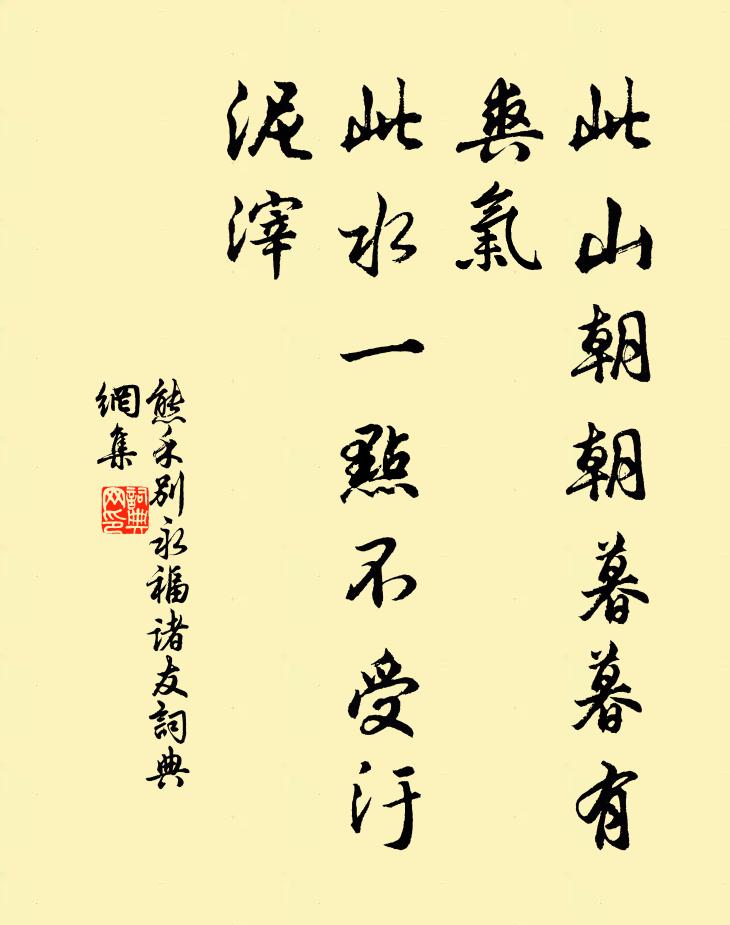 此山朝朝暮暮有
爽氣
此水一點不受汙
泥滓
熊禾別永福諸友詞典
網集
詞典網印